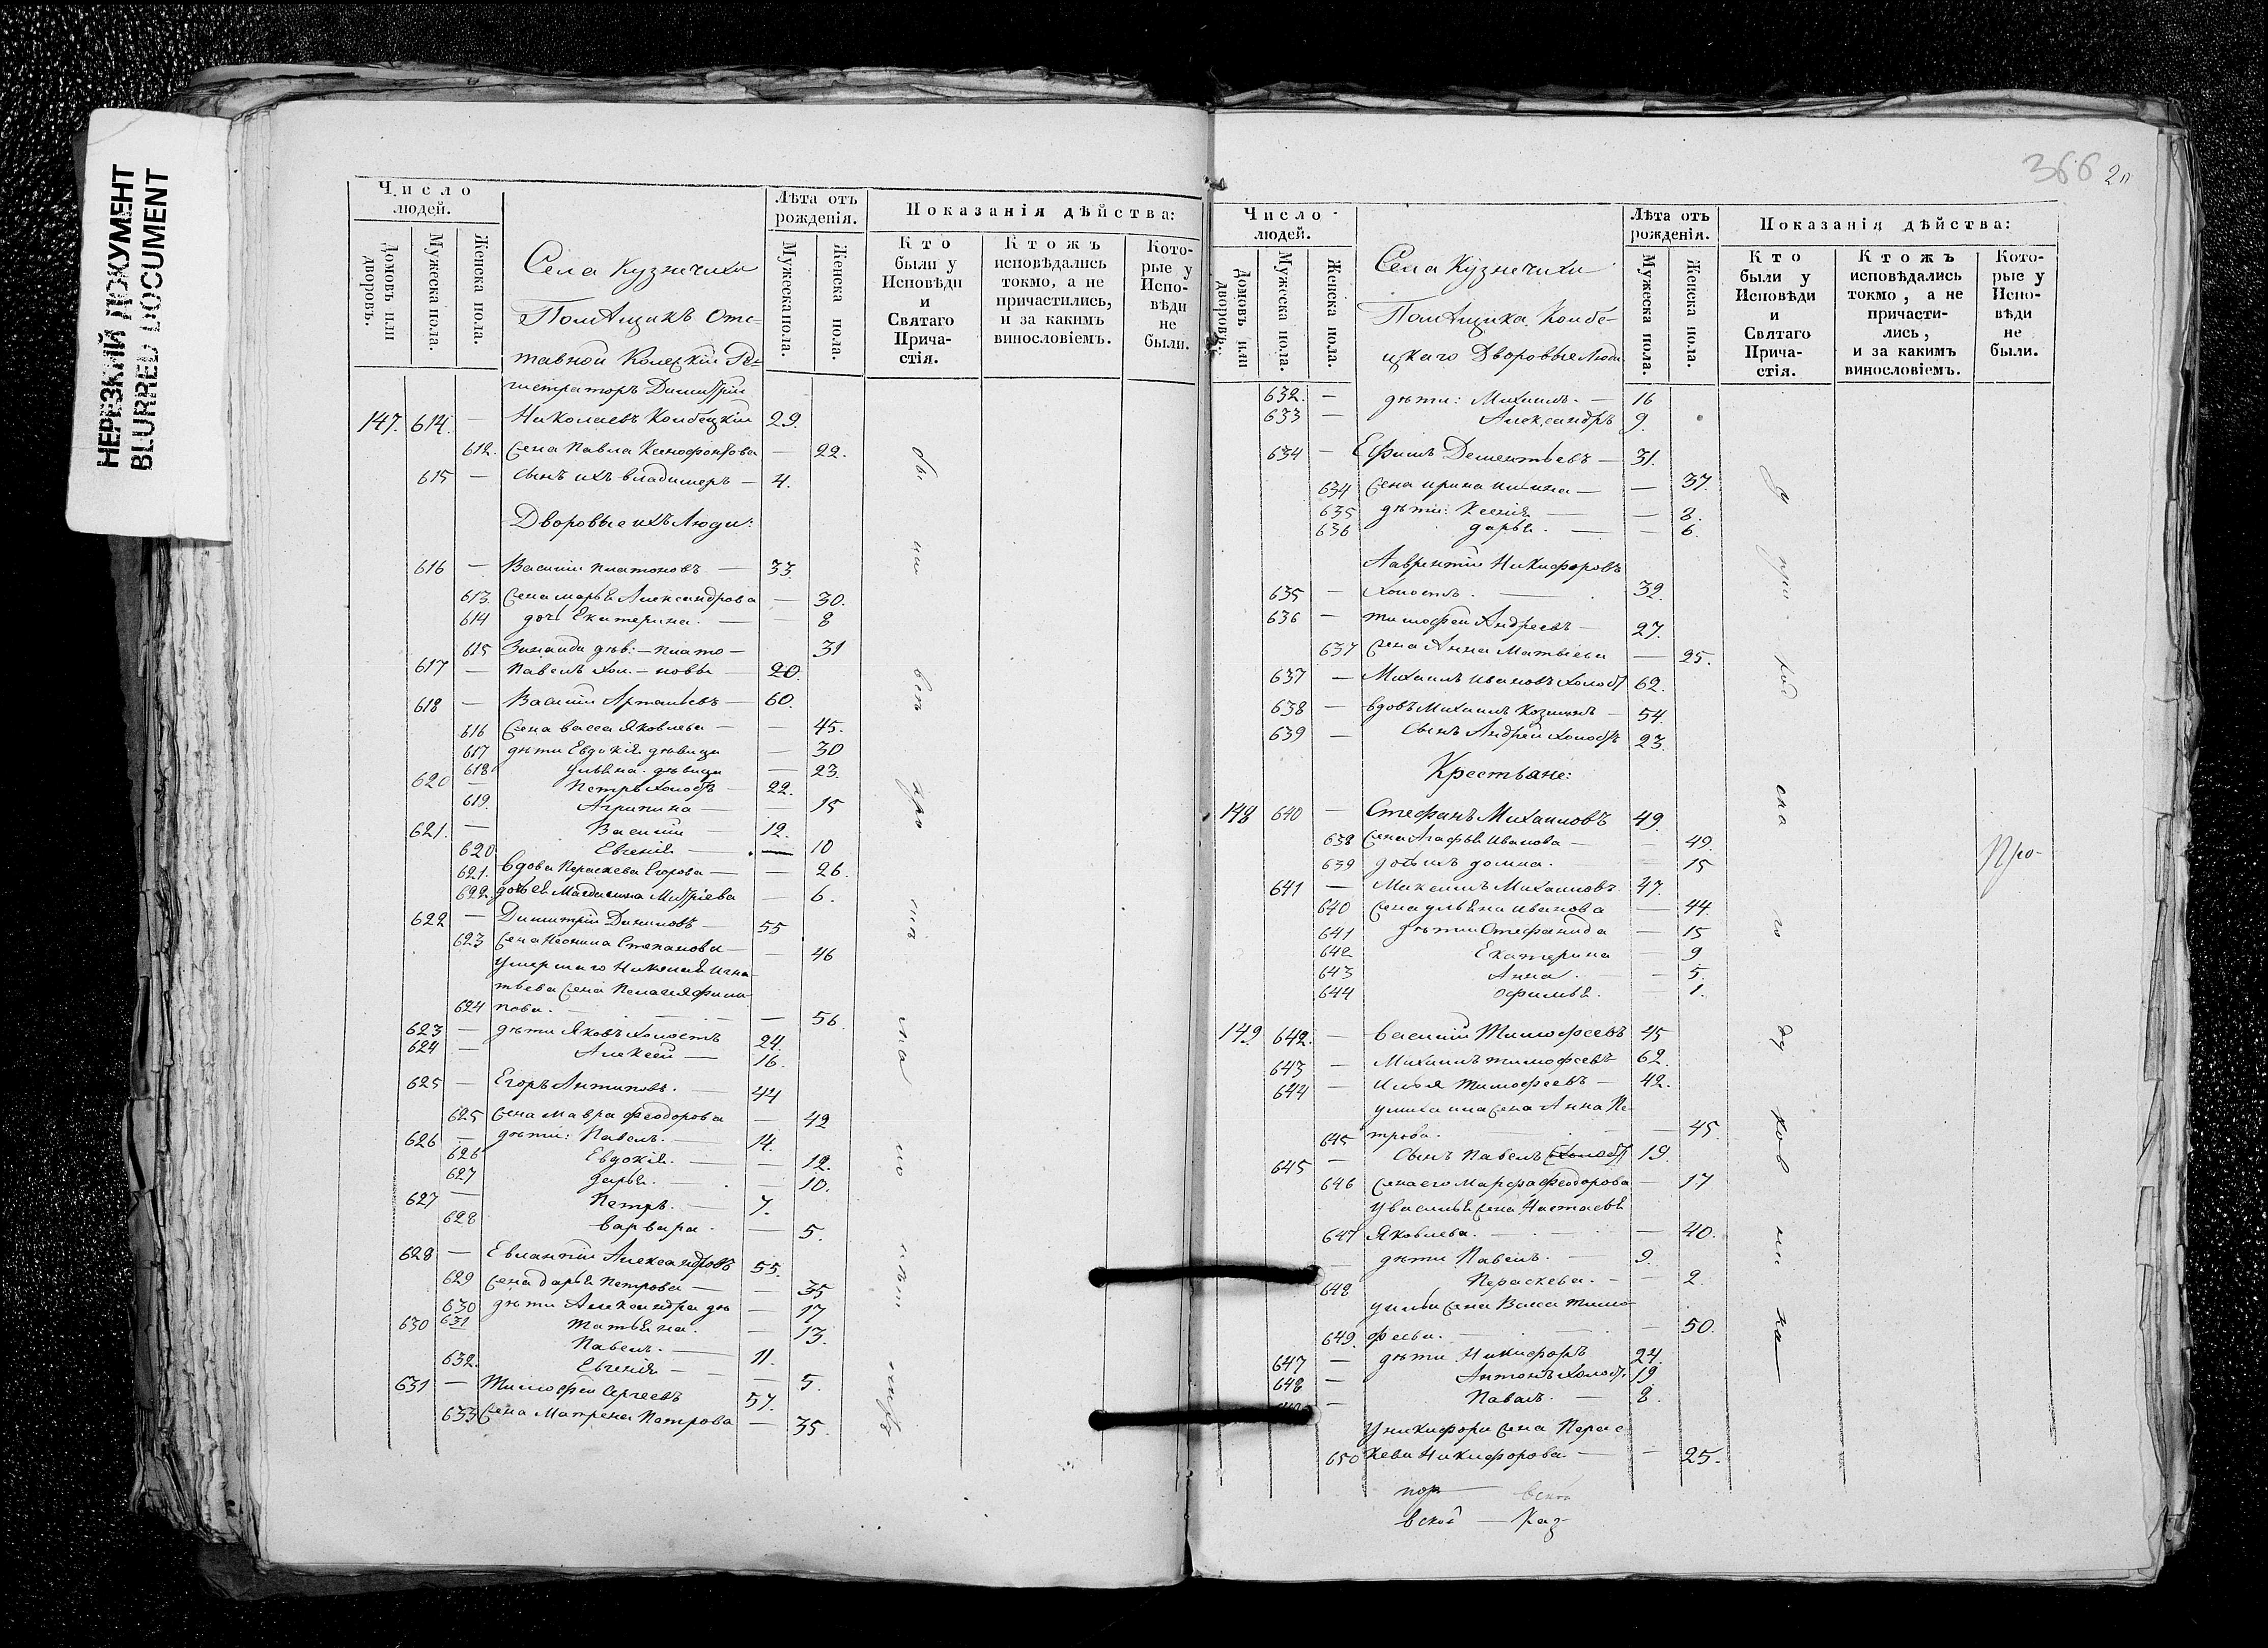 НЕРЕЗКИЙ ДОКУМЕНТ
BLURRED DOCUMENT
Число людей.
Домовъ или дворовъ.
Мужеска пола.
Женска пола.
Лѣта отъ рожденія.
Мужеска пола.
Женска пола.
Показанія дѣйства:
Кто были у Исповѣди и Святаго Причастія.
Ктожъ исповѣдались токмо, а не причастились, и за какимъ винословіемъ.
Которые у Исповѣди не были.
Села Кузнечихи
Помѣщикъ Отс-
тавной Колежкій Ре-
гистраторъ Димитрій
147. 614. — Николаевъ 29.
612. Жена Павла Ксенофонтова — 22.
615 — сынъ ихъ владимеръ — 4.
Дворовые ихъ Люди:
616 — Василій Платоновъ — 33.
613. Жена марья Александрова — 30.
614 дочь Екатерина. — — 8
615 Зинаида дѣв: — плато — 31
617 — Павелъ хол. — новы 20.
618 — Василій — 60.
616 Жена васса Яковлева — — 45.
617 дѣти Евдокія дѣвица — 30
618 Ульяна дѣвица — 23.
620 — Петръ холостъ — 22.
619. Агрипина — 15
621. — Василій — 12.
620 Евгенія — — 10
621. вдова Параскева Егорова — — 26.
622. дочь ея Магдалина — 6.
622 — Димитрій Даниловъ — 55
623 Жена Степанова — — 46
умершаго Николая Игна-
тьева Жена Пелагія Фили-
624 пова. — — — 56.
623 — дѣти Яковъ холостъ 24.
624 — Алексей — 16.
625 — Егоръ Антиповъ. — 44
625 Жена мавра феодорова — 42
626 — дѣти: Павелъ. 14.
626 Евдокія. — — 12.
627 дарья. — — 10.
627 — Петръ. — 7.
628 варвара. — 5.
628 — Александровъ 55.
629 Жена дарья Петрова — — 35
630 дѣти Александра дѣ — 17
630 631 Татьяна. — 13.
Павелъ. — 11.
632. Евгенія — — 5.
631 — Тимофей Сергеевъ 57.
633 Жена Матрена Петрова — 35.
366
Число людей.
Домовъ или дворовъ.
Мужеска пола.
Женска пола.
Лѣта отъ рожденія.
Мужеска пола.
Женска пола.
Показанія дѣйства:
Кто были у Исповѣди и Святаго Причастія.
Ктожъ исповѣдались токмо, а не причастились, и за какимъ винословіемъ.
Которые у Исповѣди не были.
Села Кузнечихи
Помѣщика
Дворовые Люди
632. — дѣти: Михаилъ. — 16
633 — Александръ 9.
634 — Ефимъ Дементьевъ — 31.
634 Жена ирина — — 37.
635 дѣти: Ксенія — — 8.
636 дарья. — — 6.
Лаврентій Никифоровъ
635 — Холостъ. — 32.
636 — тимофей Андреевъ — 27.
637 Жена Анна Матвеева — 25.
637 — Михаилъ ивановъ Холост 62.
638 — вдовъ Михаилъ — 54.
639 — Сынъ Андрей холостъ 23.
Крестьяне:
148 640 — Стефанъ Михаиловъ 49.
638 Жена Агафья Иванова — — 49.
639 дочь ихъ домна. — 15
641 — Максимъ Михаиловъ 47.
640 Жена ульяна иванова — 44.
641 дѣти Стефанида — 15
642 Екатерина — 9
643 Анна. — — 5.
644 Офимья. — 1.
149 642. — Василій Тимофеевъ 45
643 — Михаилъ тимофеевъ 62.
644 — Илья Тимофеевъ — 42.
у михаила Жена Анна Пе-
645 трова. — 45.
645 — Сынъ Павелъ 19.
646 Жена его Марфа Феодорова — 17
у василья Жена Настасья
647 Яковлева. — 40.
— дѣти Павелъ. — 9.
648 Параскева. — — 2.
у ильи Жена Васса Тимо-
649. феева. — — 50.
647 — дѣти Никифоръ 24.
648 — Антонъ холост. 19
— Павелъ. — 8.
у никифора Жена Парас-
650 кева Никифорова. — — 25.
вской — Каз